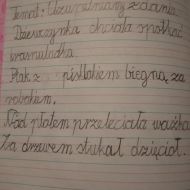 Temat: Uzupełniamy zdania.
Dziewczynka chciała spotkać
krasnoludka.
Ptak z pisklakiem biegną za
robakiem.
Nad płotem przeleciała ważka.
Za drzewem stukał dzięcioł.